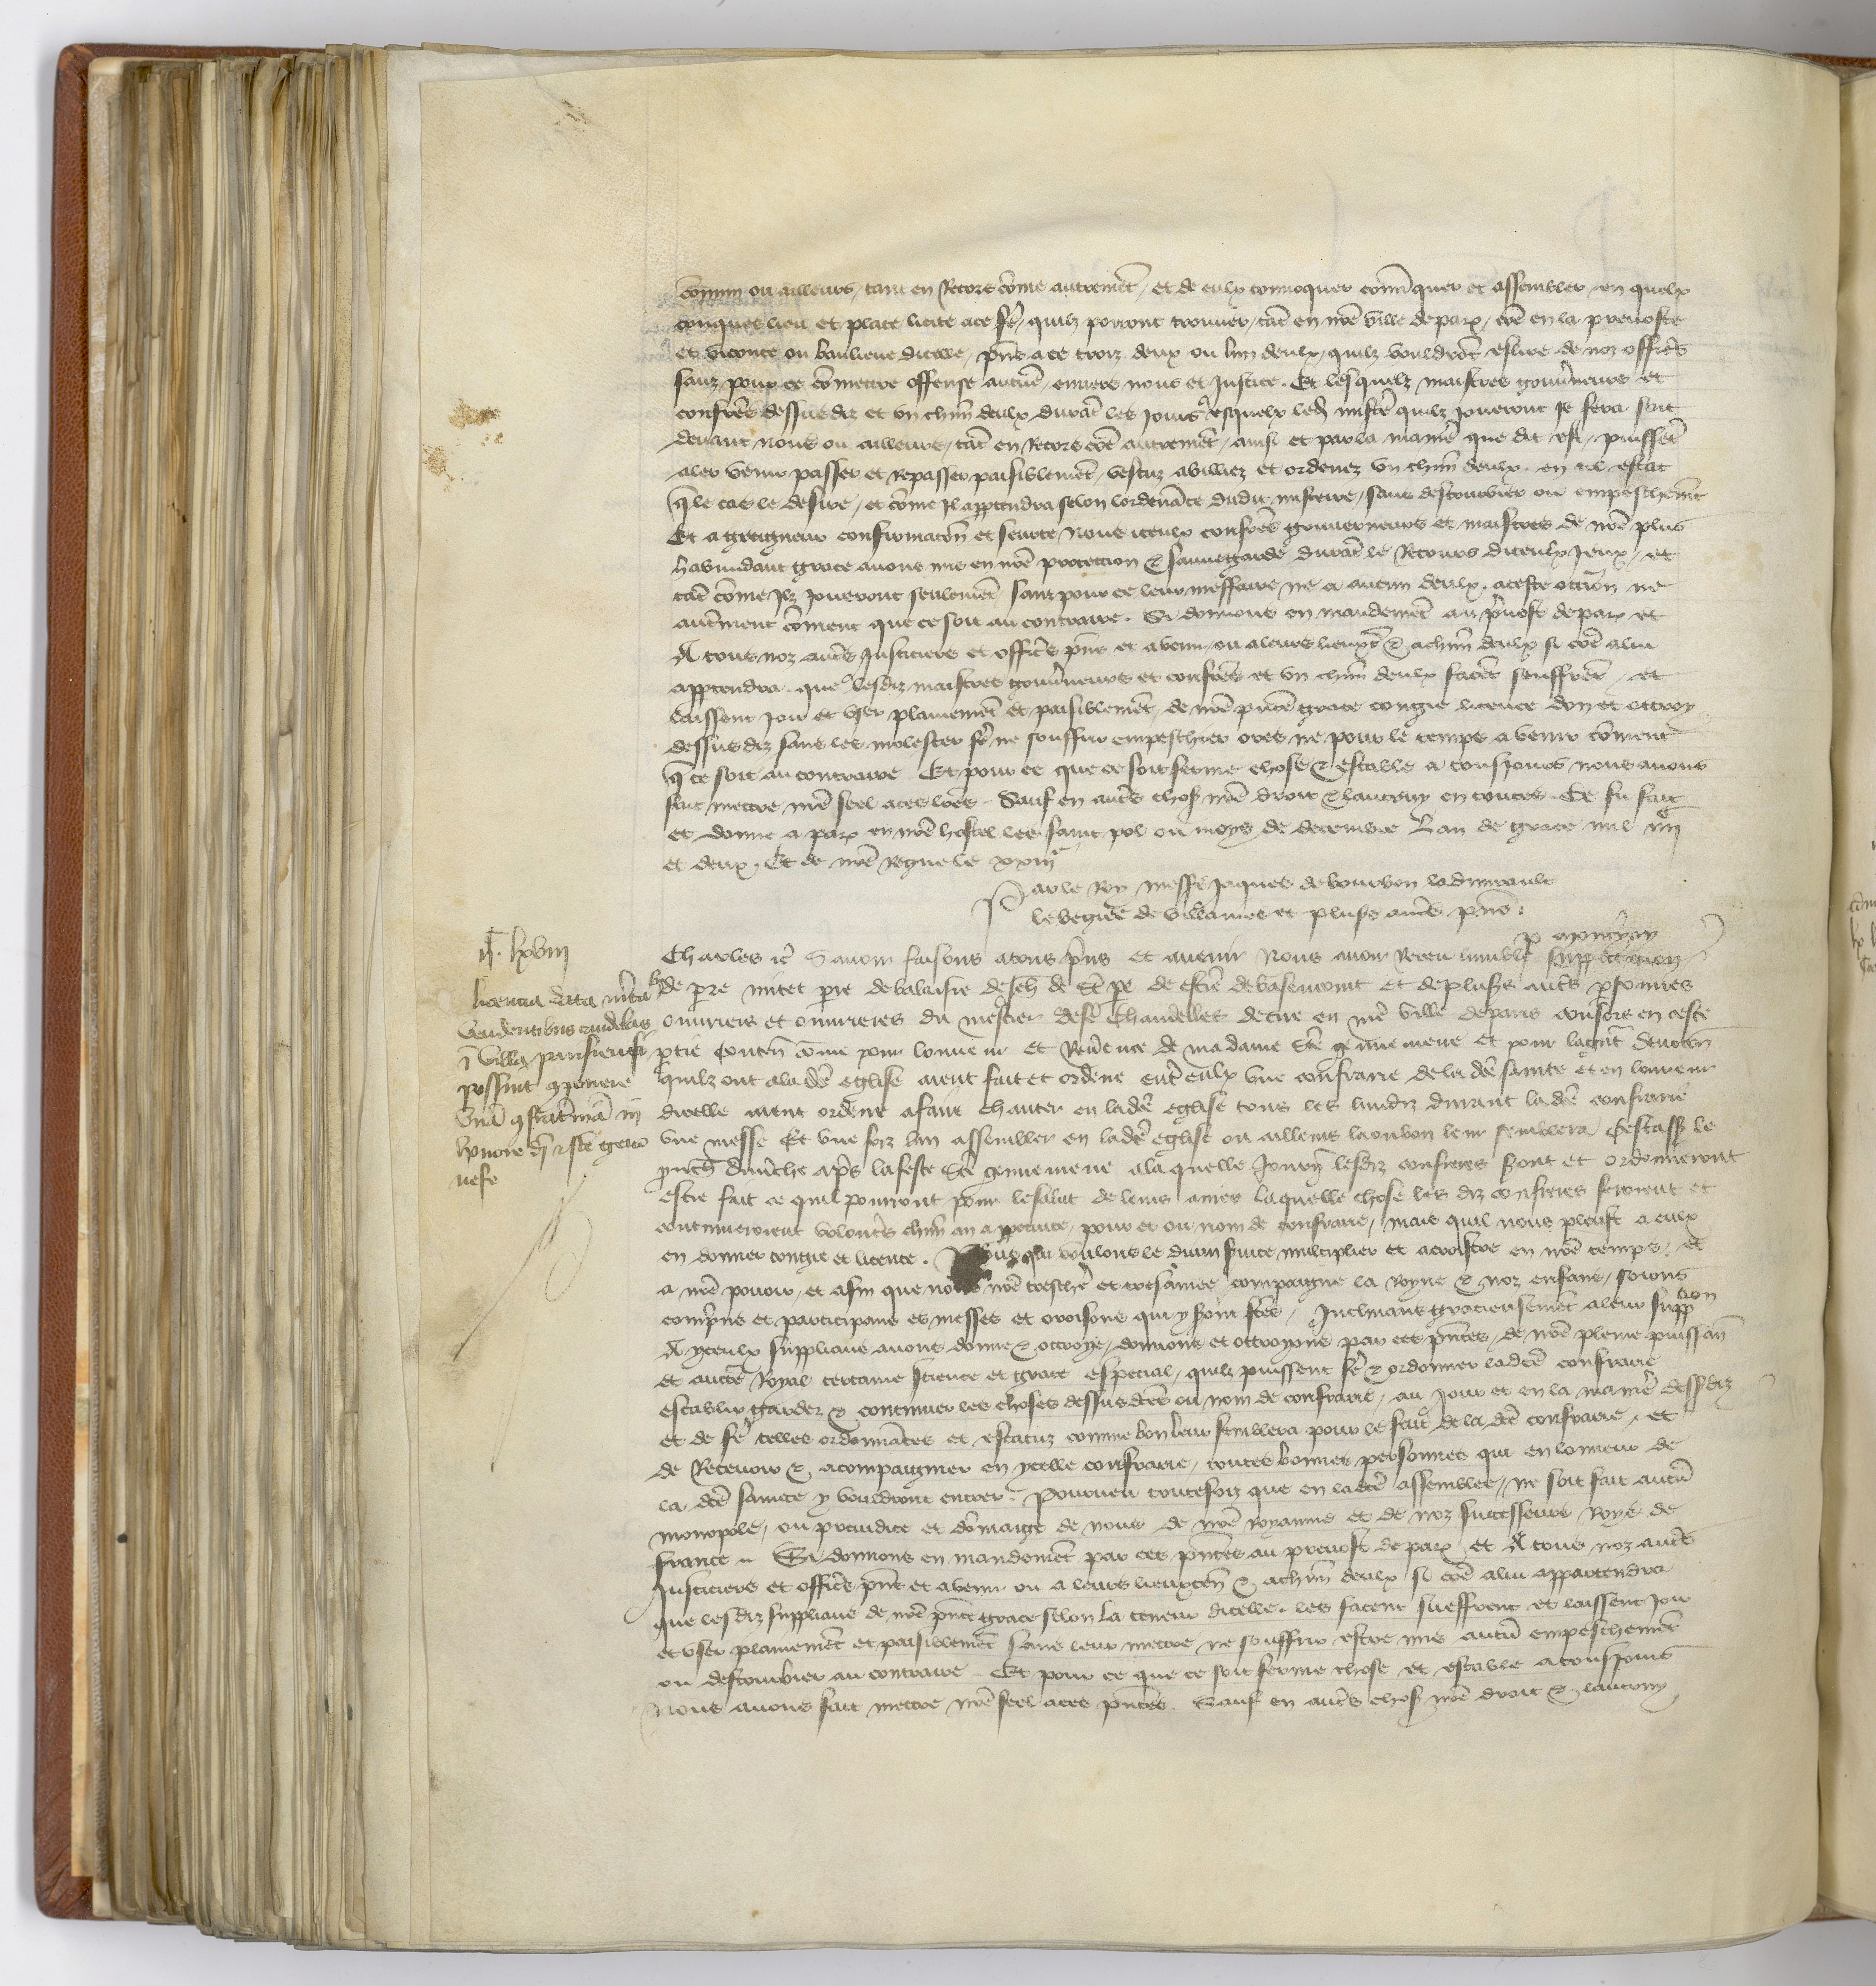 commun ou ailleurs, tant en Recors cõme autremẽt, et de eulx convoquer cõmuniquer et assembler en quelx
conques lieu et place licite ace fẽ, quilz porront trouver, tãt en nr̃e ville de par̃, cõe en la prevoste
et viconte ou banlieue dicelle, pñs a ce troiz deux ou lun deulx, quilz vouldrõt eslire de noz offic̃rs
sanz pour ce cõmettre offense aucũe, envers nous et Justice. Et lesquelz maistres gouṽneurs et
confrẽs dessusdiz et un chũn deulx durãt les jours esquelx led̃ mistẽ quilz joueront se fera soit
devant nous ou ailleurs, tãt en Recors cõe autremẽt, ainsi et par la maniẽ que dit est, puissẽt
aler venir passer et repasser paisiblemẽt, vestuz abilliez et ordenez un chũn deulx en tel estat
q̃ le cas le desire, et cõme il appartendra selon lordenãce dudit mistere, sans destourbier ou empeschemẽt
Et a greigneur confirmaciõn et seurte nous iceulx confrẽs gouverneurs et maistres de nr̃e plus
habundant grace avons mis en nr̃e proteccion & sauvegarde durãt le Recours diceulx jeux, et
tãt cõme ilz joueront seulemẽt sanz pour ce leur meffaire ne a aucun deulx a ceste occasiõn ne
autrement cõment que ce soit au contraire. Si donnons en mandemẽt au p̃vost de par̃ et
A tous noz autr̃s justiciers et offic̃rs pñs et avenir ou aleurs lieuxten̄ & achũn deulx si cõe alui
appartendra que lesdiz maistres gouṽneurs et confrẽs et un chũn deulx facẽt seuffrẽt, et
laissent joir et user plainemẽt et paisiblemẽt, de nr̃e pñte grace congie licence don et ottroy
dessusdiz sans les molester fẽ ne souffrir empeschier ores ne pour le temps avenir cõment
q̃ ce soit au contraire. Et pour ce que ce soit ferme chose & estable a tousjours nous avons
fait mettre nr̃e seel aces lr̃es. Sauf en autr̃s chos̃ nr̃e droit & lautruy en toutes. Ce fu fait
et donne a par̃ en nr̃e hostel lez saint pol ou moys de decembre Lan de grace mil iiijc
et deux. Et de nr̃e regne le xxiije
Par le Roy messẽ Jaques de bourbon ladmirault
le begue de villaines et plus̃rs autr̃s pñs.
p apurcyay
ij. lxviij
licencia data mr̃ta
vendentibus candelas
ĩ villa parisiensi
possint ꝯponere
unã ꝯfratr̃niã in
honore
nefe
Charles ic̃ Savoir faisons atous pñs et avenir Nous avoir receu lumble supplicacion
de pr̃e de de et deplus̃rs autr̃s p̃sonnes
ouvriers et ouvrieres du mestier desẽ chandelles de cire en nr̃e ville de paris consors en ceste
p̃tie conten̄ cõme pour lonneur et revẽnce de ma dame Ste genevieve et pour la grãt devociõn
quilz ont ala dc̃e eglise aient fait et ordene entr̃ eulx une confrarie de la dc̃e sainte et en lonneur
dicelle aient ordene afaire chanter en la dc̃e eglise tous les lundiz durant la dc̃e confrarie
une messe Et une foiz lan assembler en la dc̃e eglise ou ailleurs la ou bon leur semblera Cestass̃ le
p̃mier dimẽche apr̃s la feste Ste genevieve ala quelle journ̄ lesdiz confreres font et ordonneront
estre fait ce quil pourront pour le salut de leurs ames laquelle chose les diz confreres feroient et
continueroient volontr̃s chũn an a perpetuite, pour et ou nom de confrarie, mais quil nous pleust a eulx
en donner congie et licence. Nous qui voulons le divin service multiplier et acroistre en nr̃e temps, et
a nr̃e povoir, et afin que nous nr̃e treschẽ et tresamee compaigne la Royne & noz enfans, soions
comprins et participans es messes et oroisons qui y seront fc̃es, Inclinans gracieusemẽt aleur supplicacion
A yceulx supplians avons donne & ottroye, donnons et ottroyons par ces pñtes, de nr̃e pleine puissan̄
et auctẽ Royal certaine science et grace especial, quilz puissent fẽ & ordonner la dc̃e confrarie
establir garder & continuer les choses dessusdc̃es ou nom de confrarie, au jour et en la maniẽ dessusdiz
et de fẽ telles ordonnãces et estatuz comme bon leur semblera pour le fait de la dc̃e confrarie, et
de Recevoir & acompaigner en ycelle confrarie, toutes bonnes personnes qui en lonneur de
la dc̃e saincte y vouldront entrer. Pourveu toutesfoiz que en la dc̃e assemblee, ne soit fait aucũ
monopole, ou preiudice et dõmaige de nous de nr̃e royaume et de noz successeurs Roys de
france. Si donnons en mandemẽt par ces pñtes au prevost de par̃ et A tous noz autr̃s
Justiciers et offic̃rs pñs et avenir ou a leurs lieuxten̄ & achũn deulx si cõe alui appartendra
que lesdiz supplians de nr̃e pñte grace selon la teneur dicelle les facent sueffrent et laissent joir
et user plainemẽt et paisiblemẽt sans leur mettre ne souffrir estre mis aucũ empeschemẽt
ou destourbier au contraire. Et pour ce que ce soit ferme chose et estable atousjours
Nous avons fait mettre nr̃e seel aces pñtes. Sauf en autr̃s chos̃ nr̃e droit & lautruy